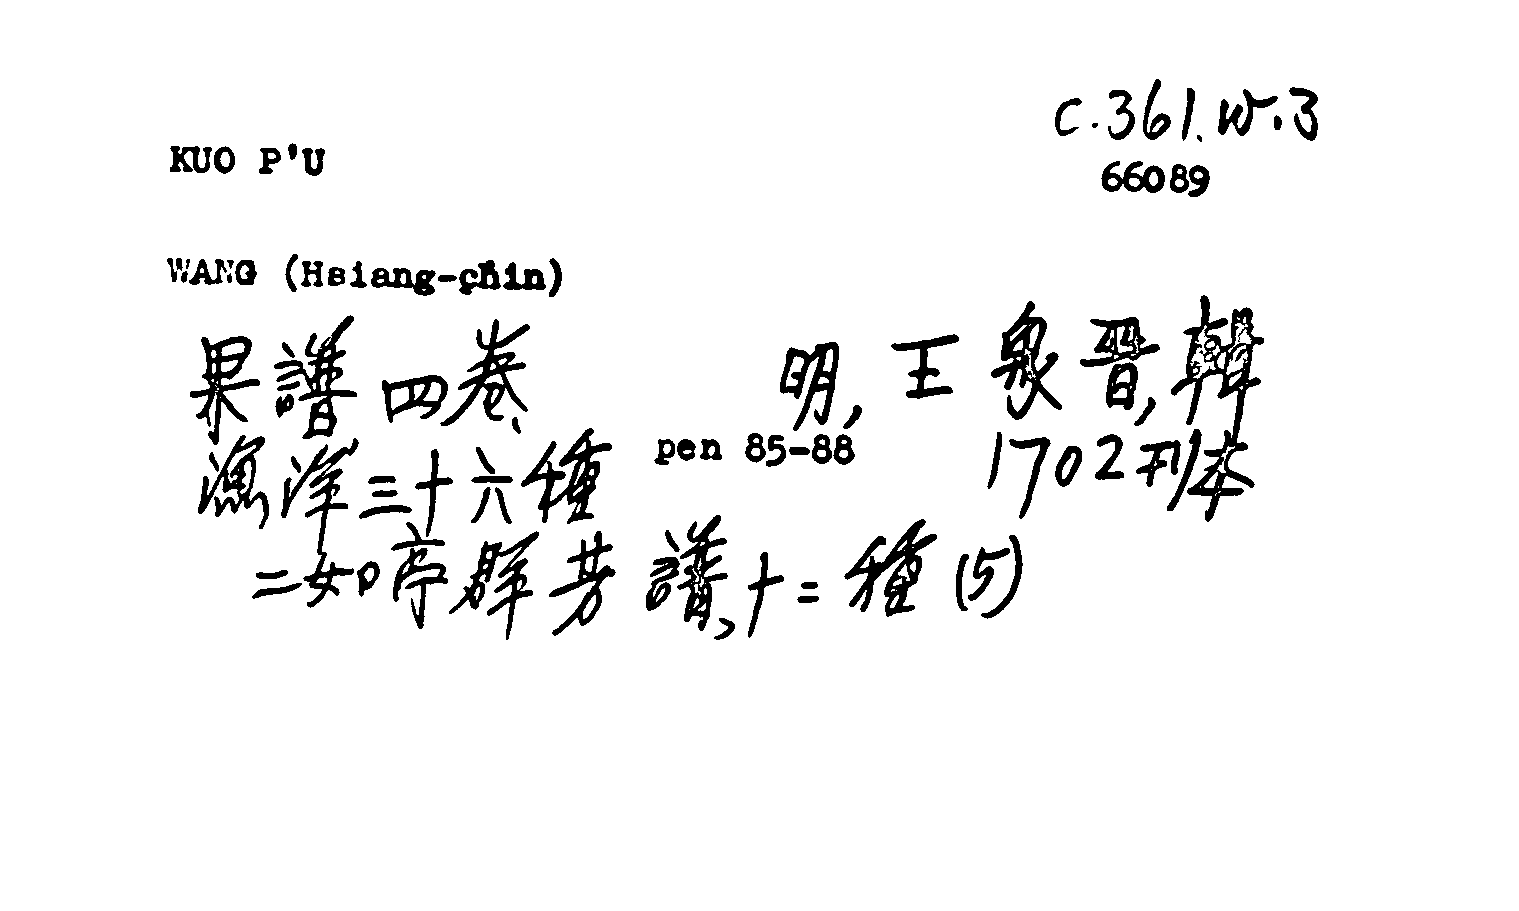 C.361.W.3
KUO P'U
66089
WANG (Hsiang-chin)
果譜四卷 明,王象晉,輯
漁洋三十六種 pen 85-88 1702刊本
二如亭群芳譜,十二種(5)